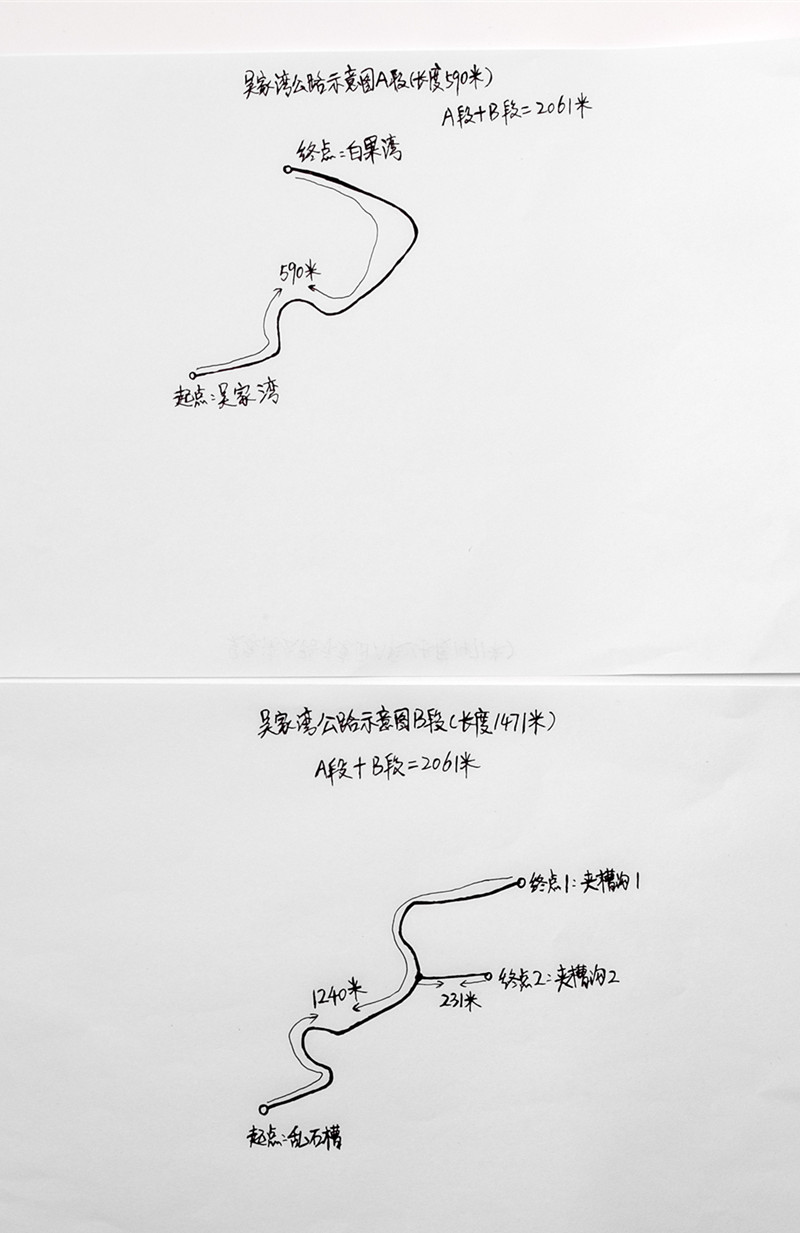 吴家湾公路示意图A段(长度590米)
A段+B段=2061米
终点:白果湾
590米
起点:吴家湾
吴家湾公路示意图B段(长度1471米)
A段+B段=2061米
终点1:夹槽沟1
终点2:夹槽沟2
1240米
231米
起点:乱石槽